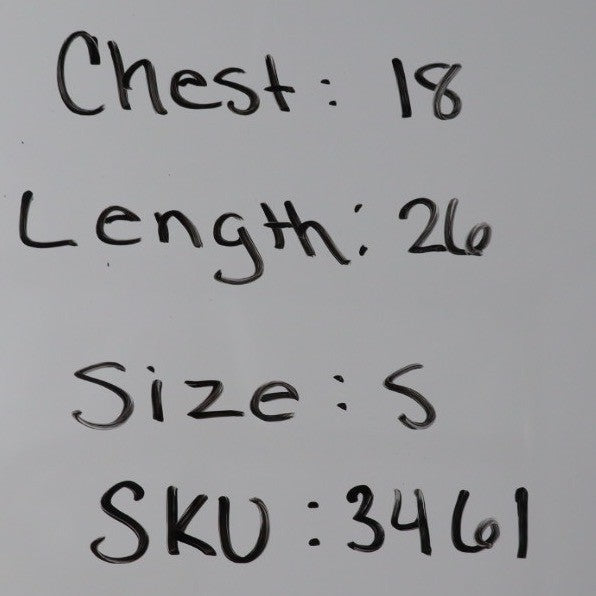 Chest: 18
Length: 26
Size: S
SKU: 3461